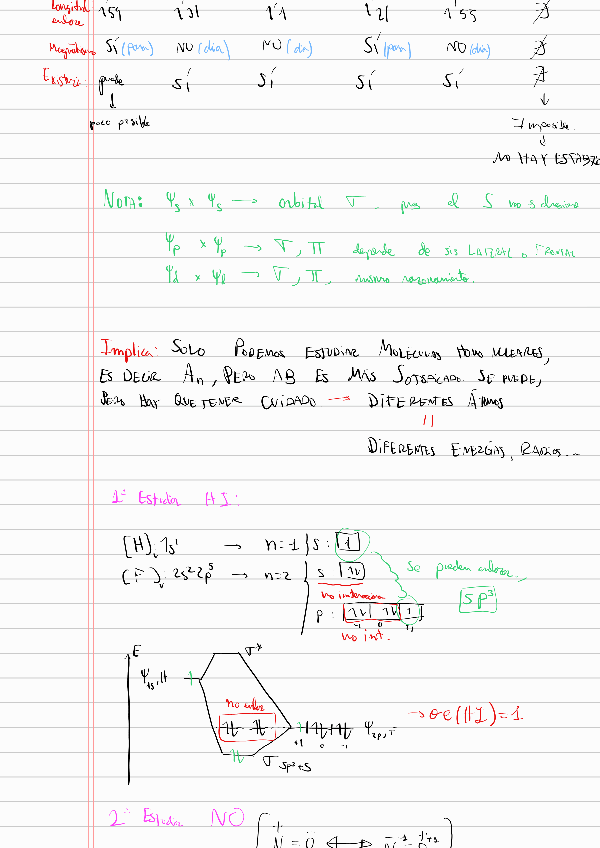 Longitud enlace 1'59 1'31 1'1 1'21 1'55 ∄
Magnetismo Sí (para) NO (dia) NO (dia) Sí (para) NO (dia) ∄
Existencia: puede Sí Sí Sí Sí ∄
↓ ↓
poco posible Imposible
↓
NO HAY ESTABLE
NOTA: Ψs x Ψs → orbital σ, pues el S no
Ψp x Ψp → σ, π depende de si es LATERAL o FRONTAL
Ψd x Ψd → σ, π, mismo razonamiento.
Implica: SOLO PODEMOS ESTUDIAR MOLÉCULAS HOMONUCLEARES,
ES DECIR An, PERO AB ES MÁS SE PUEDE,
PERO HAY QUE TENER CUIDADO → DIFERENTES ÁTOMOS
||
DIFERENTES ENERGÍAS, RADIOS...
1º Estudiar HI:
[H]: 1s¹ → n=1 s: 1
[F]: 2s²2p⁵ → n=2 s 1↓ se pueden enlazar,
no interacciona sp³
p: 1↓ 1↓ 1
-1 0 +1
no int.
E σ*
Ψ1s, H
no enlaz
+1 0 -1 Ψ2p, F → oe(HI)=1
σ sp³+s
2º Estudiar NO
N = O ↔ N⁻¹ = O⁺¹